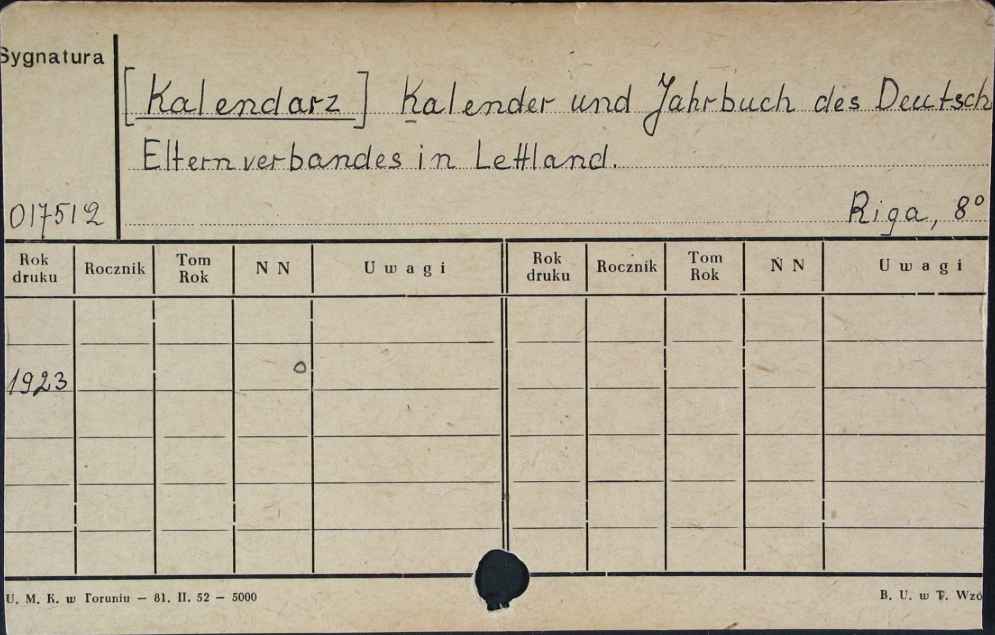 Sygnatura
[Kalendarz] Kalender und Jahrbuch des Deutsch
Elternverbandes in Lettland.
017512
Riga, 8°
Rok druku Rocznik Tom Rok N N Uwagi Rok druku Rocznik Tom Rok N N Uwagi
1923
U. M. K. w Toruniu — 81. II. 52 — 5000
B. U. w T. Wzó